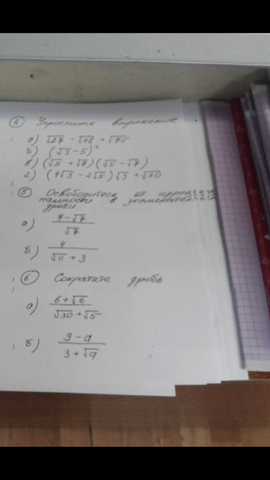 ④ Упростите выражение
а) √27 - √48 + √75
б) (√3 - 5)²
в) (√5 + √7)(√5 - √7)
г) (4√3 - 2√5)√3 + √60
⑤ Освободитесь от иррацио
нальности в знаменателе
дроби
а) 7-√7 / √7
б) 4 / √11 + 3
⑥ Сократите дробь
а) 6+√6 / √30 + √5
б) 9-a / 3+√a